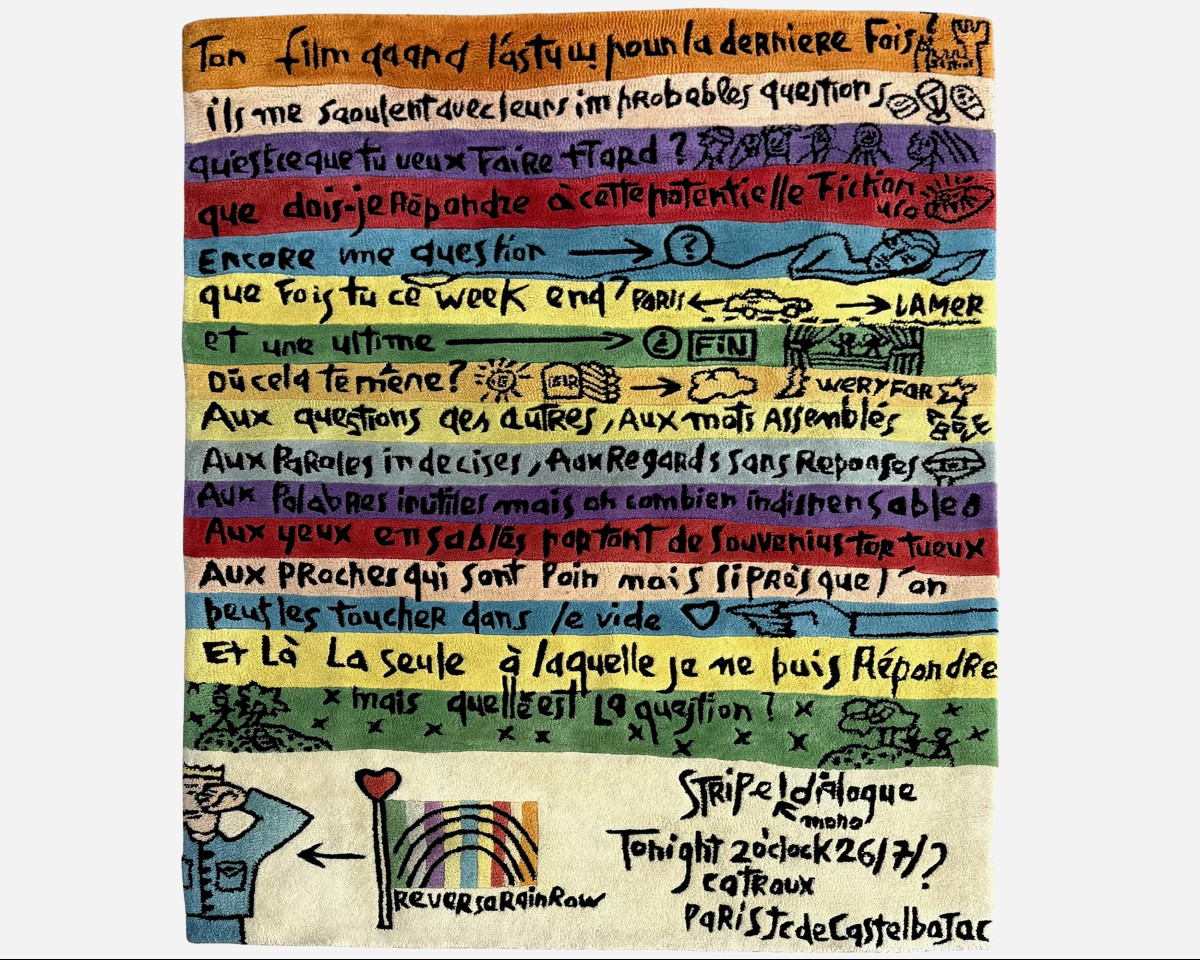 Ton film quand l'as tu vu pour la derniere Fois
ils me saoulent avec leurs improbables questions
qu'est ce que tu veux Faire + TARD ?
que dois-je Répondre à cette potentielle Fiction
Encore une question → ?
que Fais tu ce week end ? PARIS ← → LAMER
et une ultime → ¿ FiN
Où cela te mène ? → WERY FAR
Aux questions des autres, Aux mots Assemblés
Aux PaRoles indecises, Aux RegaRds sans Reponses
Aux PalabRes inutiles mais oh combien indispensables
Aux yeux ensablés partant de souvenirs tortueux
Aux PRoches qui sont loin mais si près que l'on
peut les toucheR dans le vide
Et Là La seule à laquelle je ne puis RépondRe
x mais quelle est La question ? x
STRiPe ! diAlogue
mono
Tonight 2 o'clock 26/7/?
CATRoux
PARiS JcdeCastelbaJac
ReveRseRainRow